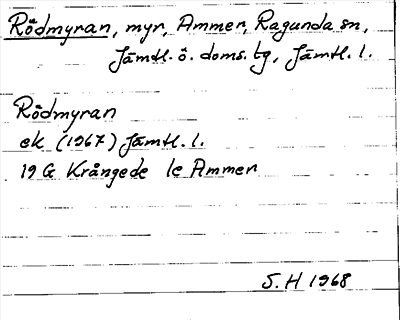 Rödmyran, myr, Ammer, Ragunda sn,
Jämtl. ö. doms. tg, Jämtl. l.
Rödmyran
ek (1967) Jämtl. l.
19 G Krångede 1e Ammer
S. H 1968